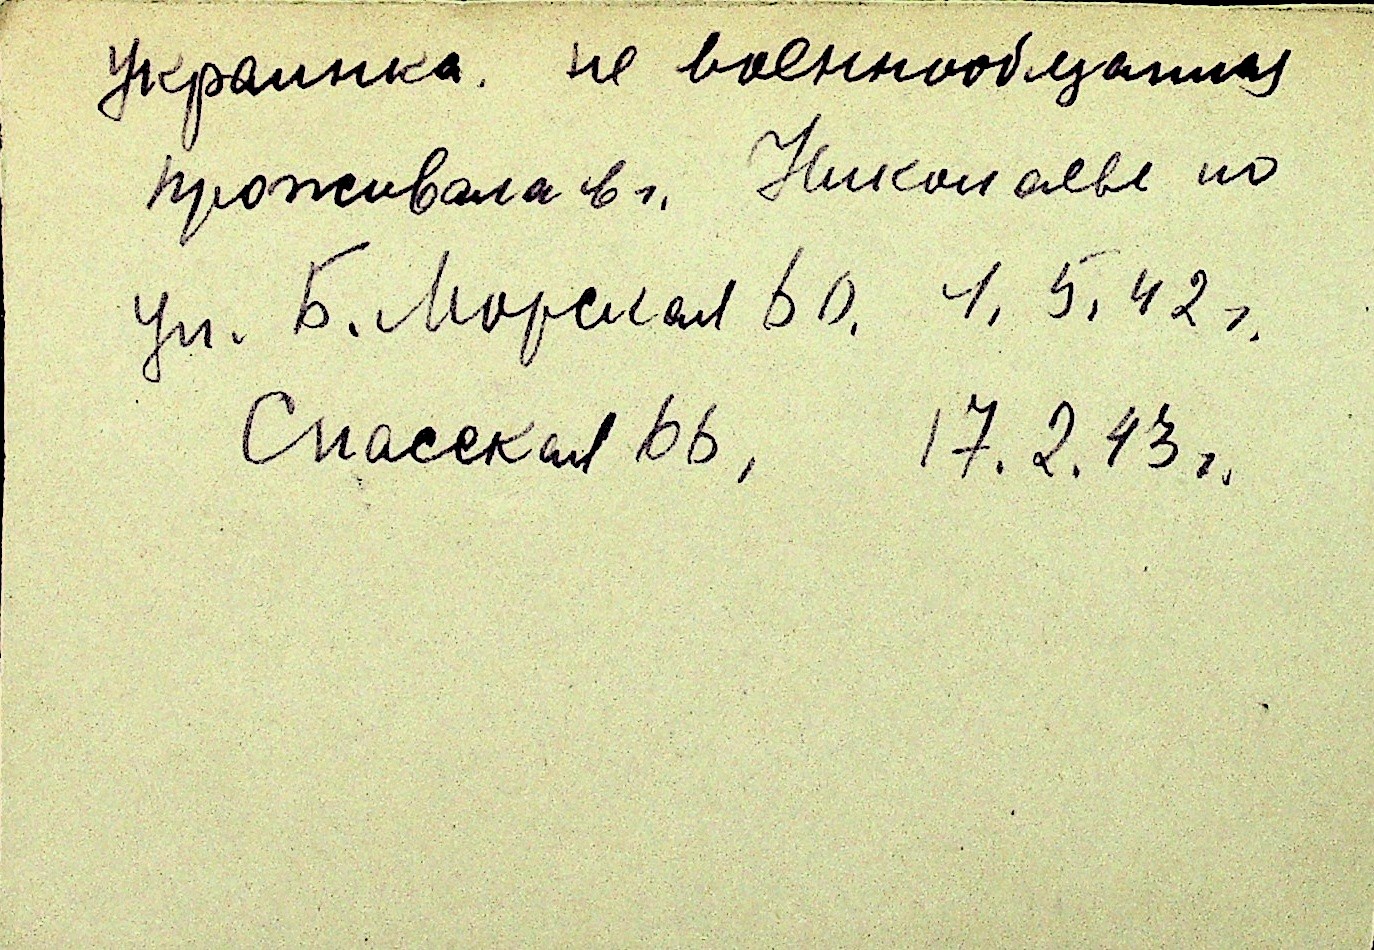 Украинка. не военнообязанная
проживала в г. Николаеве по
ул. Б. Морская 60. 1. 5. 42 г.
Спасская 66, 17. 2. 43 г.